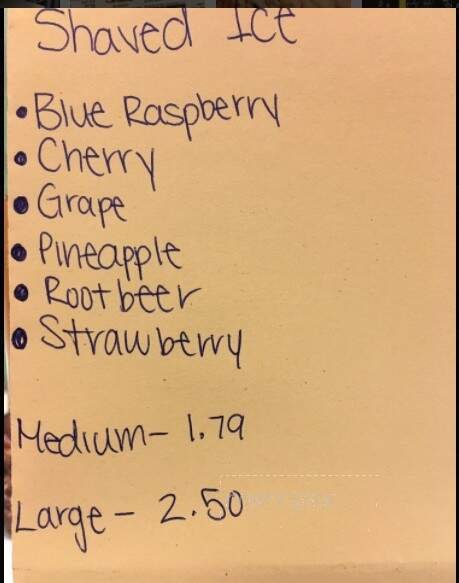 Shaved Ice
• Blue Raspberry
• Cherry
• Grape
• Pineapple
• Rootbeer
• Strawberry
Medium - 1.79
Large - 2.50